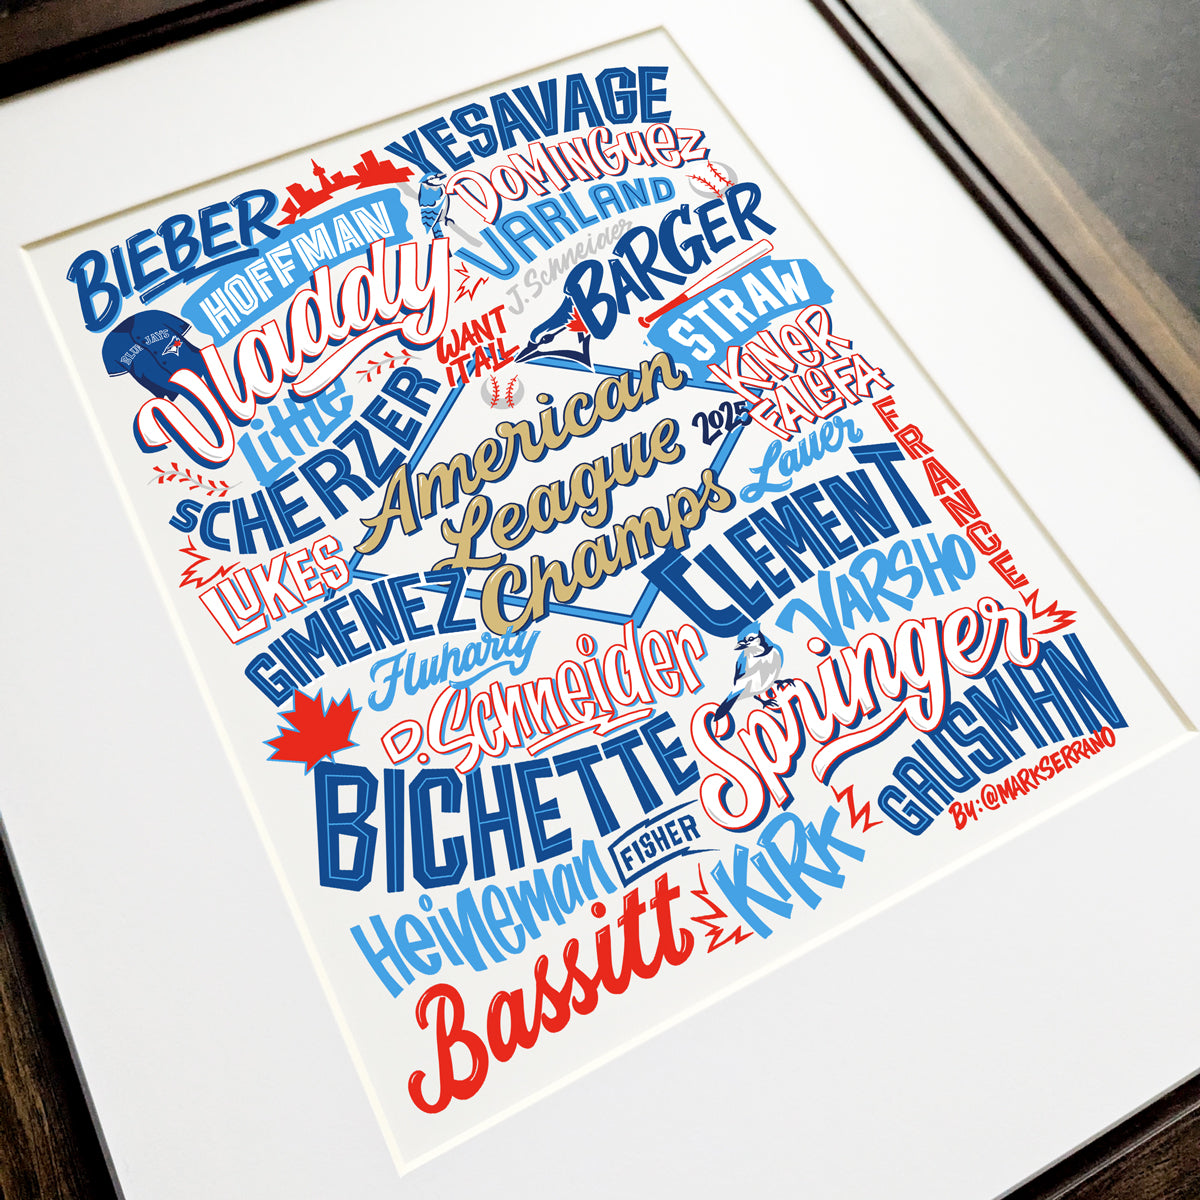 YESAVAGE
DOMINGUEZ
BIEBER
HOFFMAN
VARLAND
J. Schneider
BARGER
Vladdy
BLUE JAYS
WANT
IT ALL
STRAW
KINER
FALEFA
Little
SCHERZER
American
League
Champs
2025
Lauer
FRANCE
CLEMENT
LUKES
GIMÉNEZ
VARSHO
Fluharty
D. Schneider
Springer
GAUSMAN
By: @MARKSERRANO
BICHETTE
FISHER
KIRK
Heineman
Bassitt